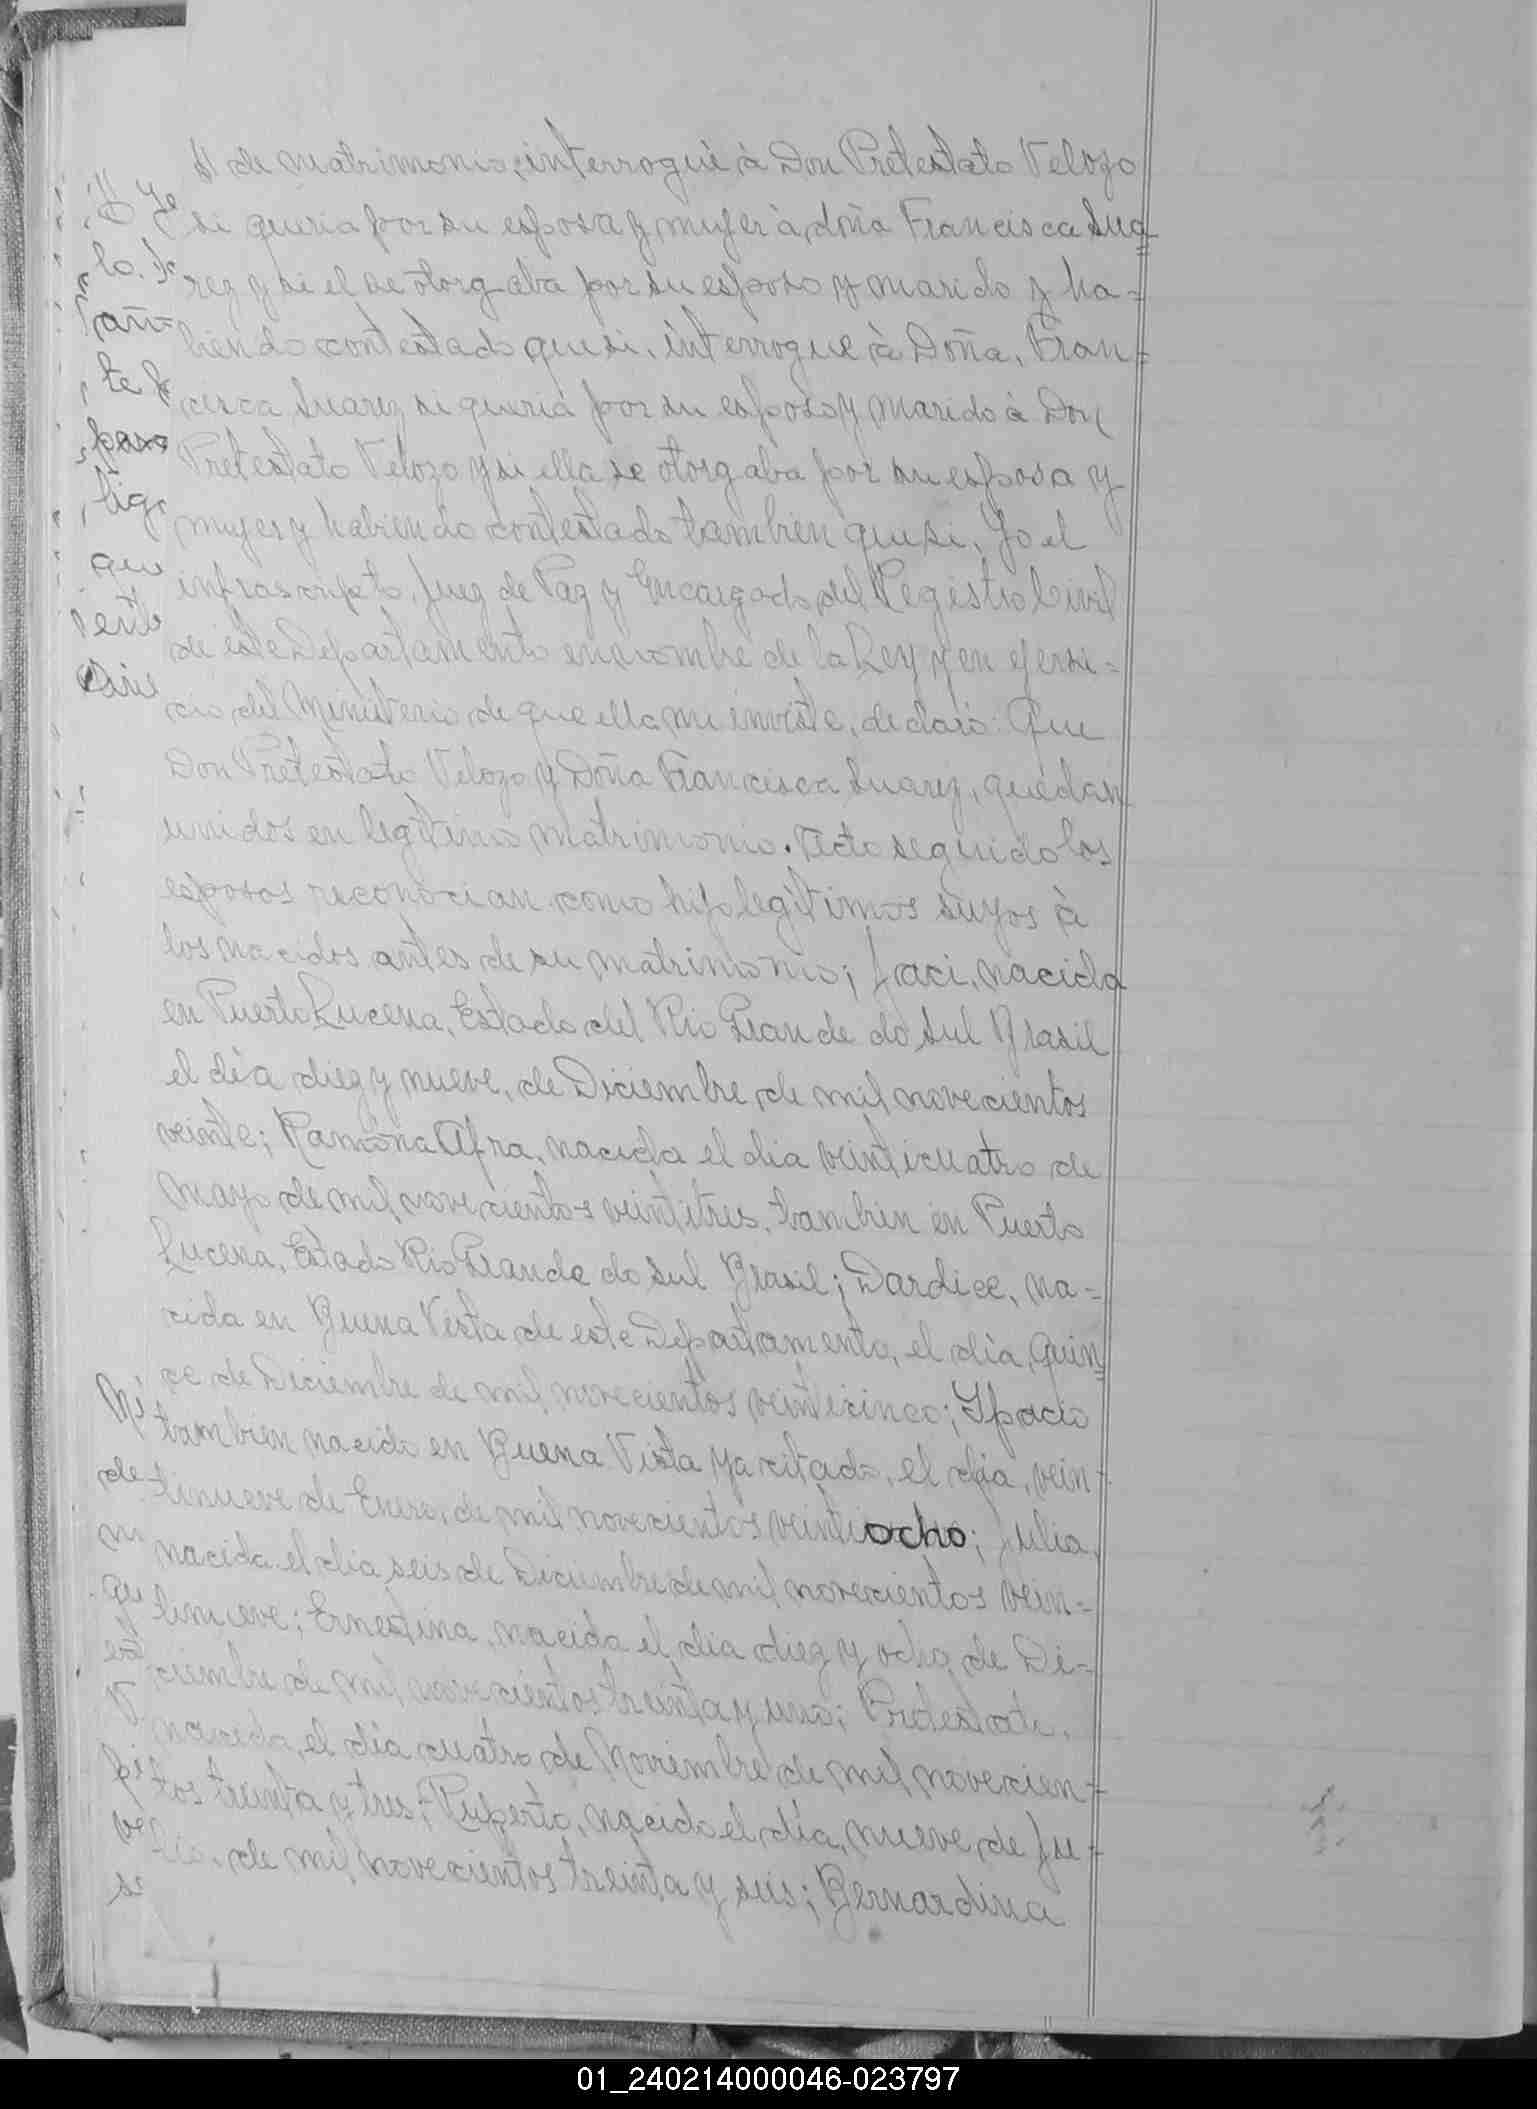 de matrimonio, interrogué à Don Pretestato Velozo
si queria por su esposa y mujer à doña Francisca Sua
rez y si el se otorgaba por su esposo y marido y ha=
biendo contestado que si, interrogue à Doña, Fran=
cisca Suarez si queria por su esposo y marido à Don
Pretestato Velozo y si ella se otorgaba por su esposa y
mujer y habiendo contestado tambien que si, Yo el
infrascripto, Juez de Paz y Encargado del Registro Civil
de este Departamento en nombre de la Ley y en ejersi=
cio del Ministerio de que ella me inviste, declaro: Que
Don Pretestato Velozo y Doña Francisca Suarez, quedan
unidos en legitimo matrimonio. Acto seguido los
esposos reconocian como hijo legitimos suyos à
los nacidos antes de su matrimonio; Jaci, nacida
en Puerto Lucena, Estado del Rio Grande do Sul Brasil
el día diez y nueve, de Diciembre, de mil novecientos
veinte; Ramona Afra, nacida el dia veinticuatro de
Mayo de mil novecientos veintitres, tambien en Puerto
Lucena, Estado Rio Grande do Sul Brasil; Dardice, na=
cida en Buena Vista de este Departamento, el día, quin=
ce de Diciembre de mil novecientos veinticinco; Ypacio
tambien nacido en Buena Vista ya citado, el día, vein=
tinueve de Enero, de mil novecientos veintiocho; Julia,
nacida el dia seis de Diciembre de mil novecientos vein=
tinueve; Ernestina, nacida el dia diez y ocho, de Di=
ciembre de mil novecientos treinta y uno; Pretestato,
nacido, el día cuatro de Noviembre de mil novecien=
tos treinta y tres; Ruperto, nacido el día, nueve de Ju=
lio, de mil novecientos treinta y seis; Bernardina
01_240214000046-023797